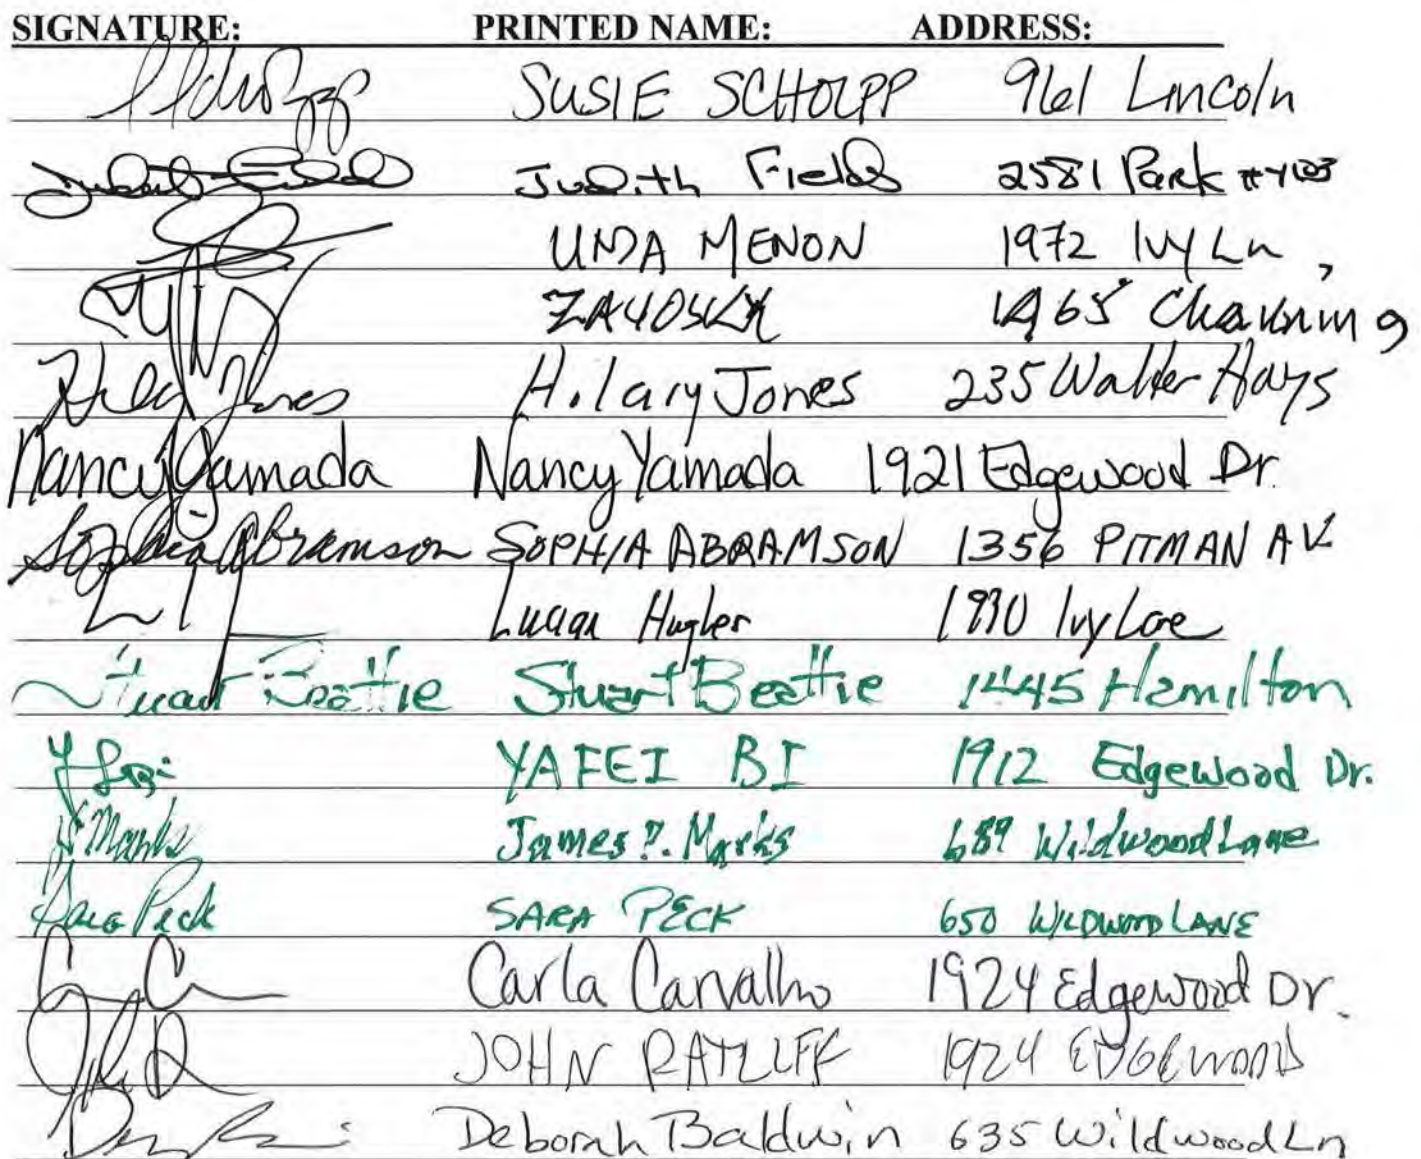 SIGNATURE: PRINTED NAME: ADDRESS:
SUSIE SCHOLPP 961 Lincoln
Judith Fields 2581 Park
MENON 1972 Ivy Ln,
1465 Channing
Hilary Jones Hilary Jones 235 Walter Hays
Nancy Yamada Nancy Yamada 1921 Edgewood Dr.
Sophia Abramson SOPHIA ABRAMSON 1356 PITMAN AV
Ivy
Stuart Beattie Stuart Beattie 1445 Hamilton
YAFEI BI 1912 Edgewood Dr.
Marks James P. Marks 689 Wildwood Lane
Sara Peck SARA PECK 650 WILDWOOD LANE
Carla Carvalho 1924 Edgewood Dr.
JOHN RATLIFF 1924 EDGEWOOD
Deborah Baldwin 635 Wildwood Ln